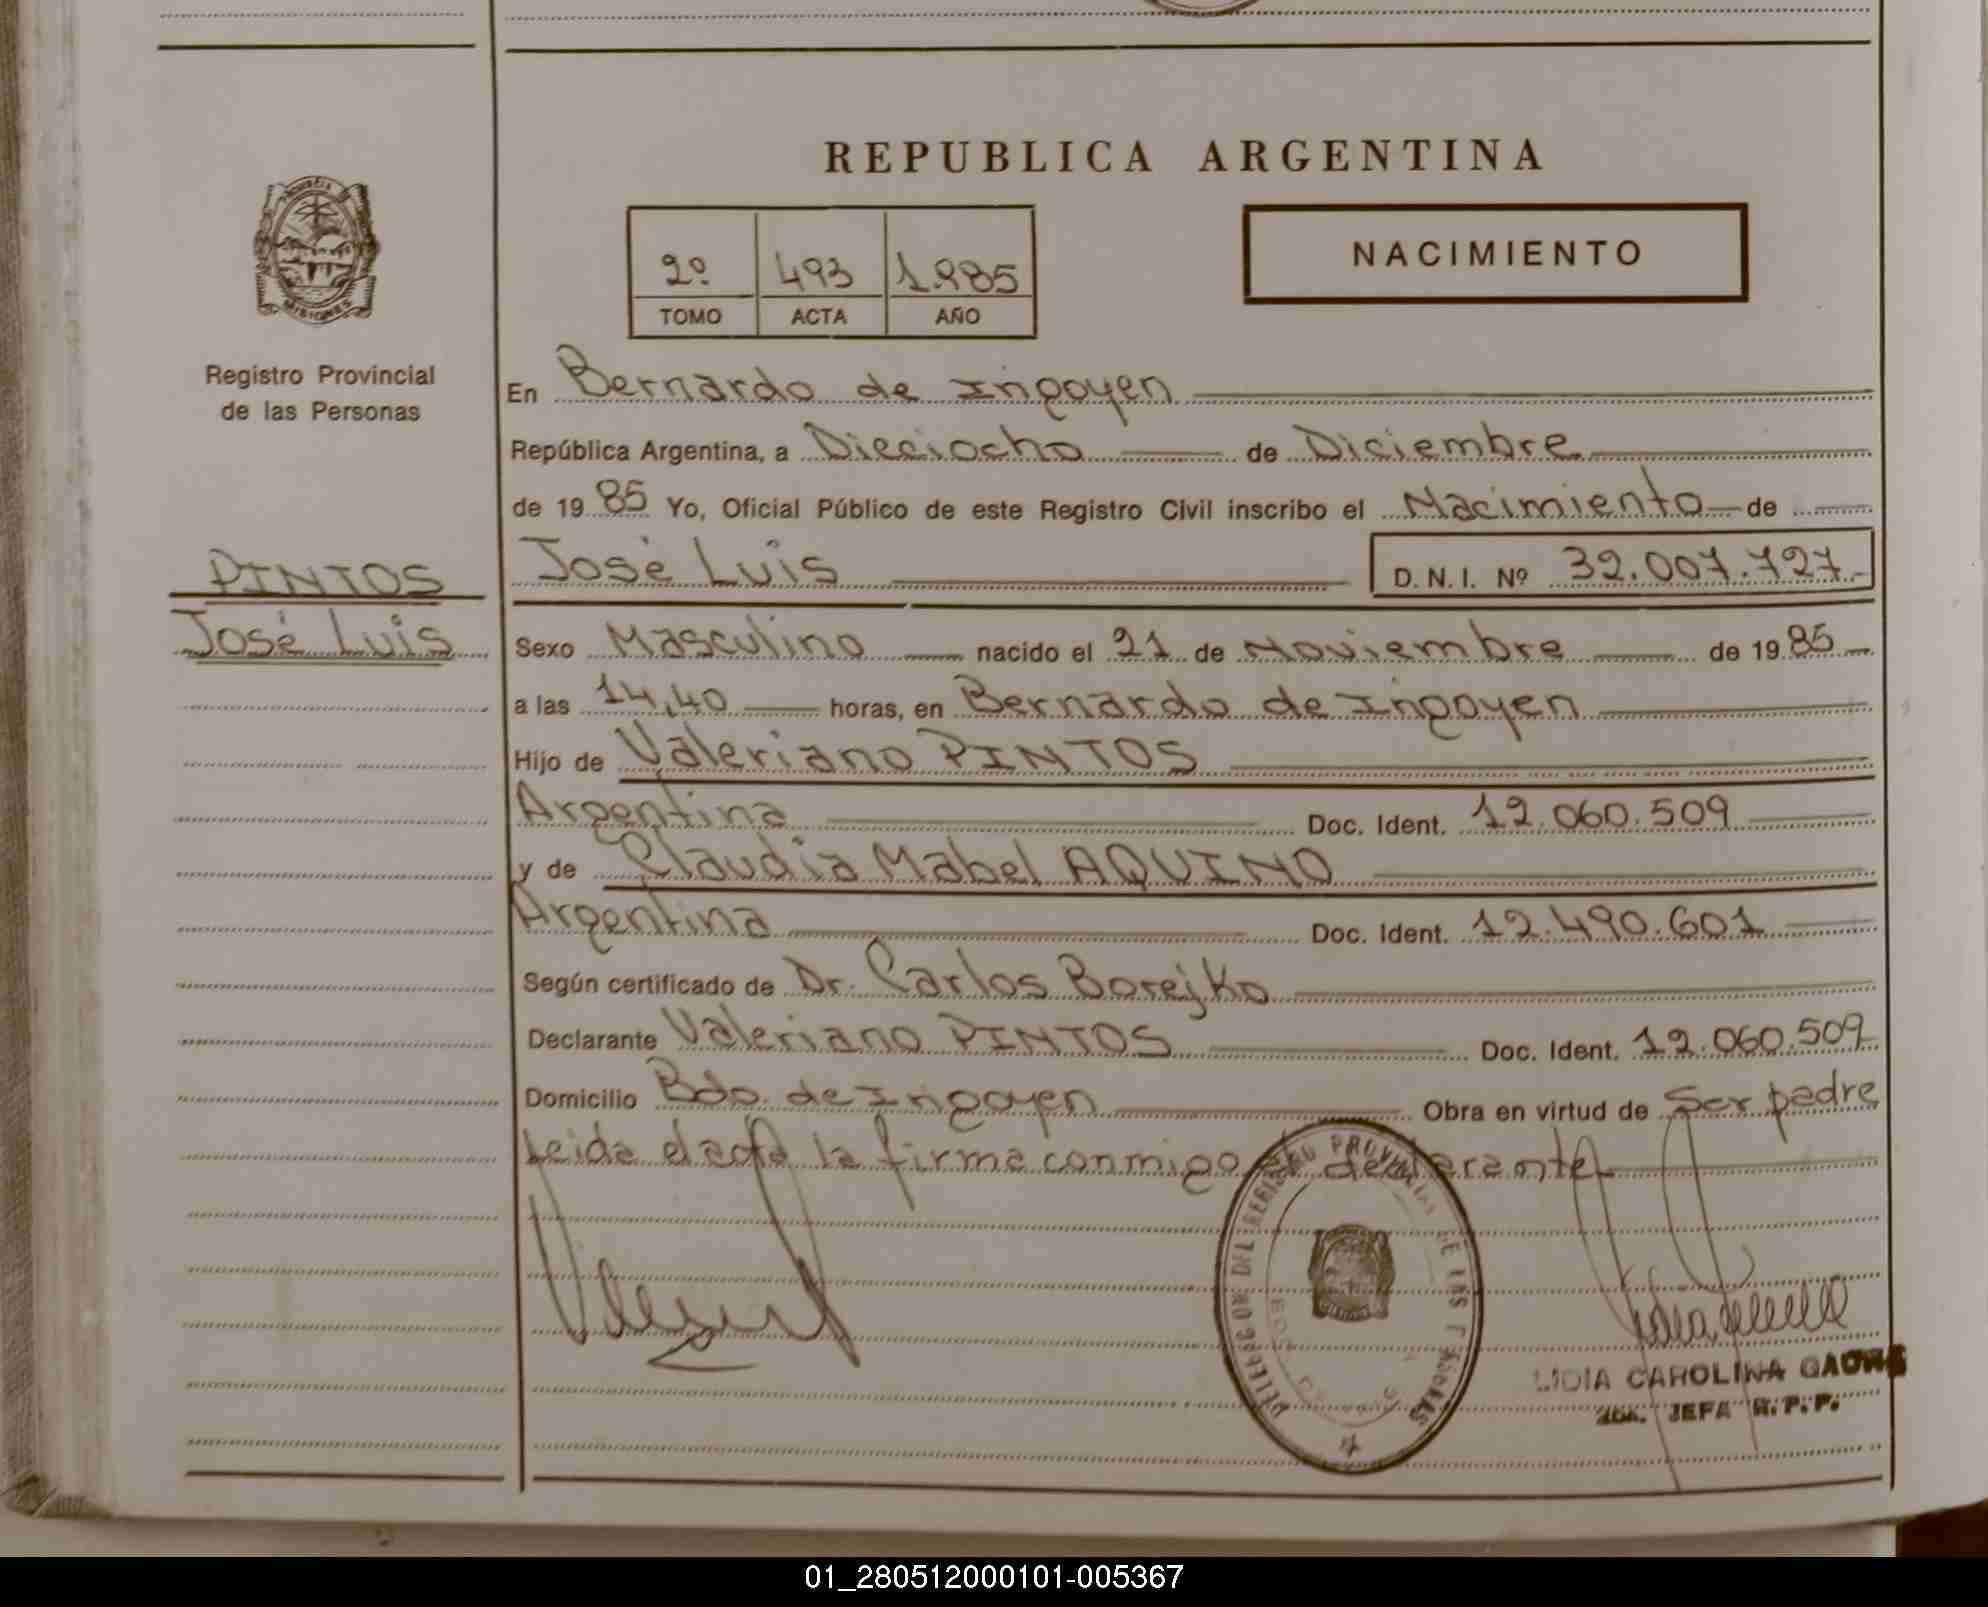 REPUBLICA ARGENTINA
2º 493 1.985
TOMO ACTA AÑO
NACIMIENTO
MISIONES
Registro Provincial
de las Personas
PINTOS
José Luis
En Bernardo de Irigoyen
República Argentina, a Dieciocho de Diciembre
de 19 85 Yo, Oficial Público de este Registro Civil inscribo el Nacimiento de
José Luis D.N.I. Nº 32.007.727
Sexo Masculino nacido el 21 de Noviembre de 19 85
a las 14,40 horas, en Bernardo de Irigoyen
Hijo de Valeriano PINTOS
Argentina Doc. Ident. 12.060.509
y de Claudia Mabel AQUINO
Argentina Doc. Ident. 12.490.601
Según certificado de Dr. Carlos Borejko
Declarante Valeriano PINTOS Doc. Ident. 12.060.509
Domicilio Bdo. de Irigoyen Obra en virtud de Ser padre
Leida el acta la firma conmigo el declarante
DELEGACION DEL REGISTRO PROVINCIAL DE LAS PERSONAS
LIDIA CAROLINA
2da. JEFA R.P.P.
01_280512000101-005367